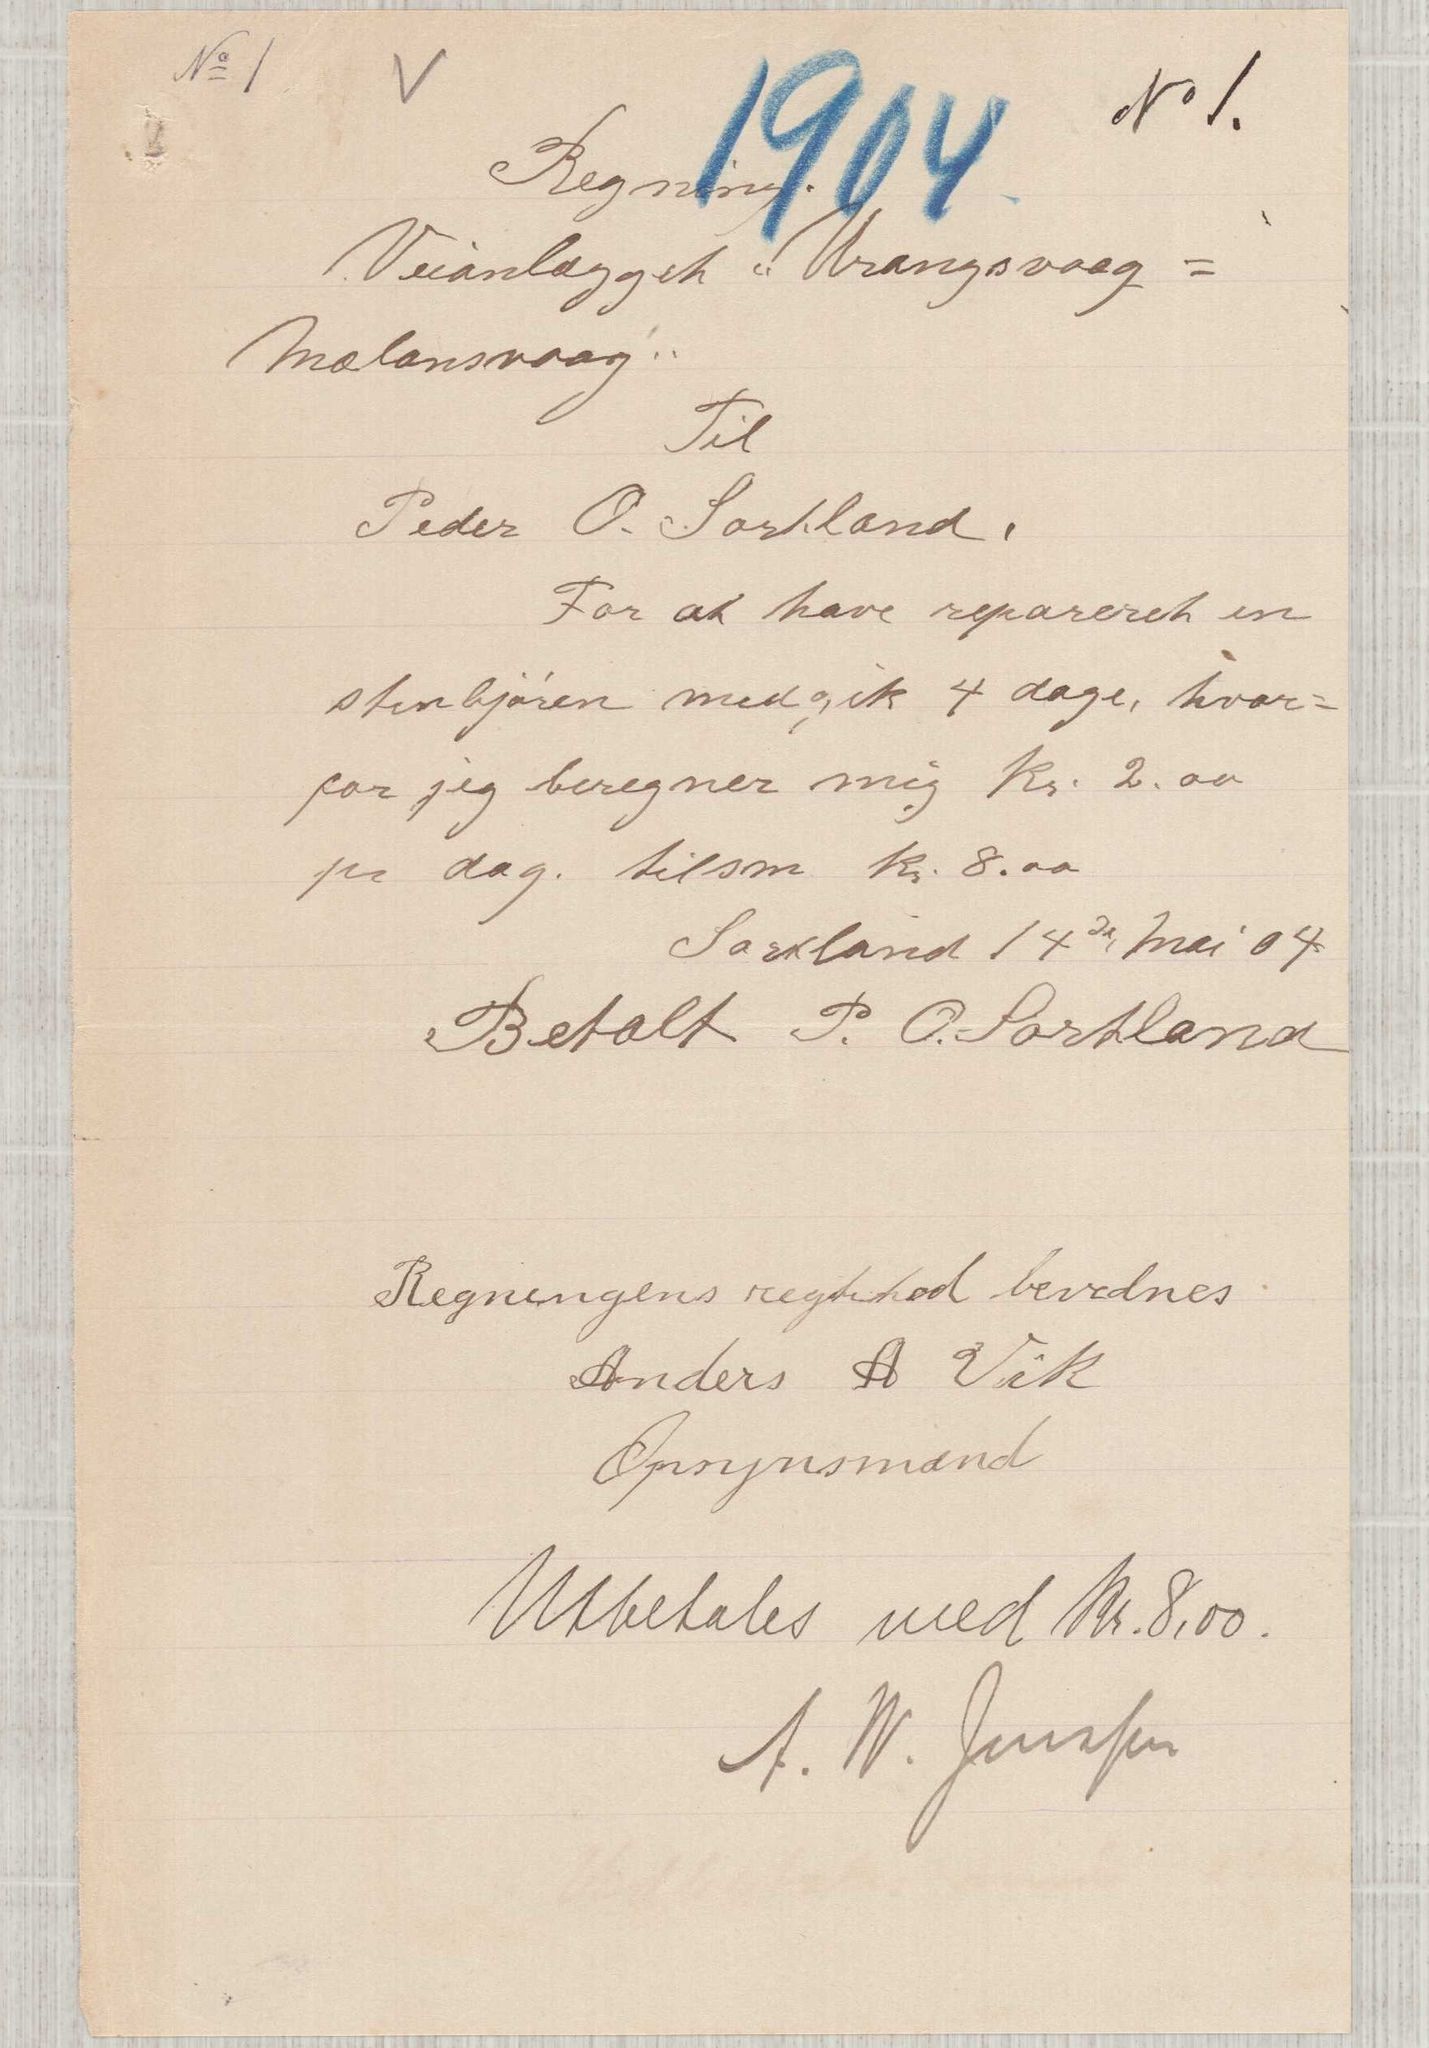 No 1 V 1904 No 1.
Regning.
Veianlægget "Urangsvaag=
Mælansvaag".
Til
Peder O. Sortland.
For at have repareret en
stenbjøren medgik 4 dage, hvor=
for jeg beregner mig Kr. 2.00
pr dag. tilsm kr. 8.00
Sortland 14de Mai 04
Betalt P. O. Sortland
Regningens regtihed bevidnes
Anders A Vik
Opsynsmand
Utbetales med Kr. 8,00.
A. W. Jenssen